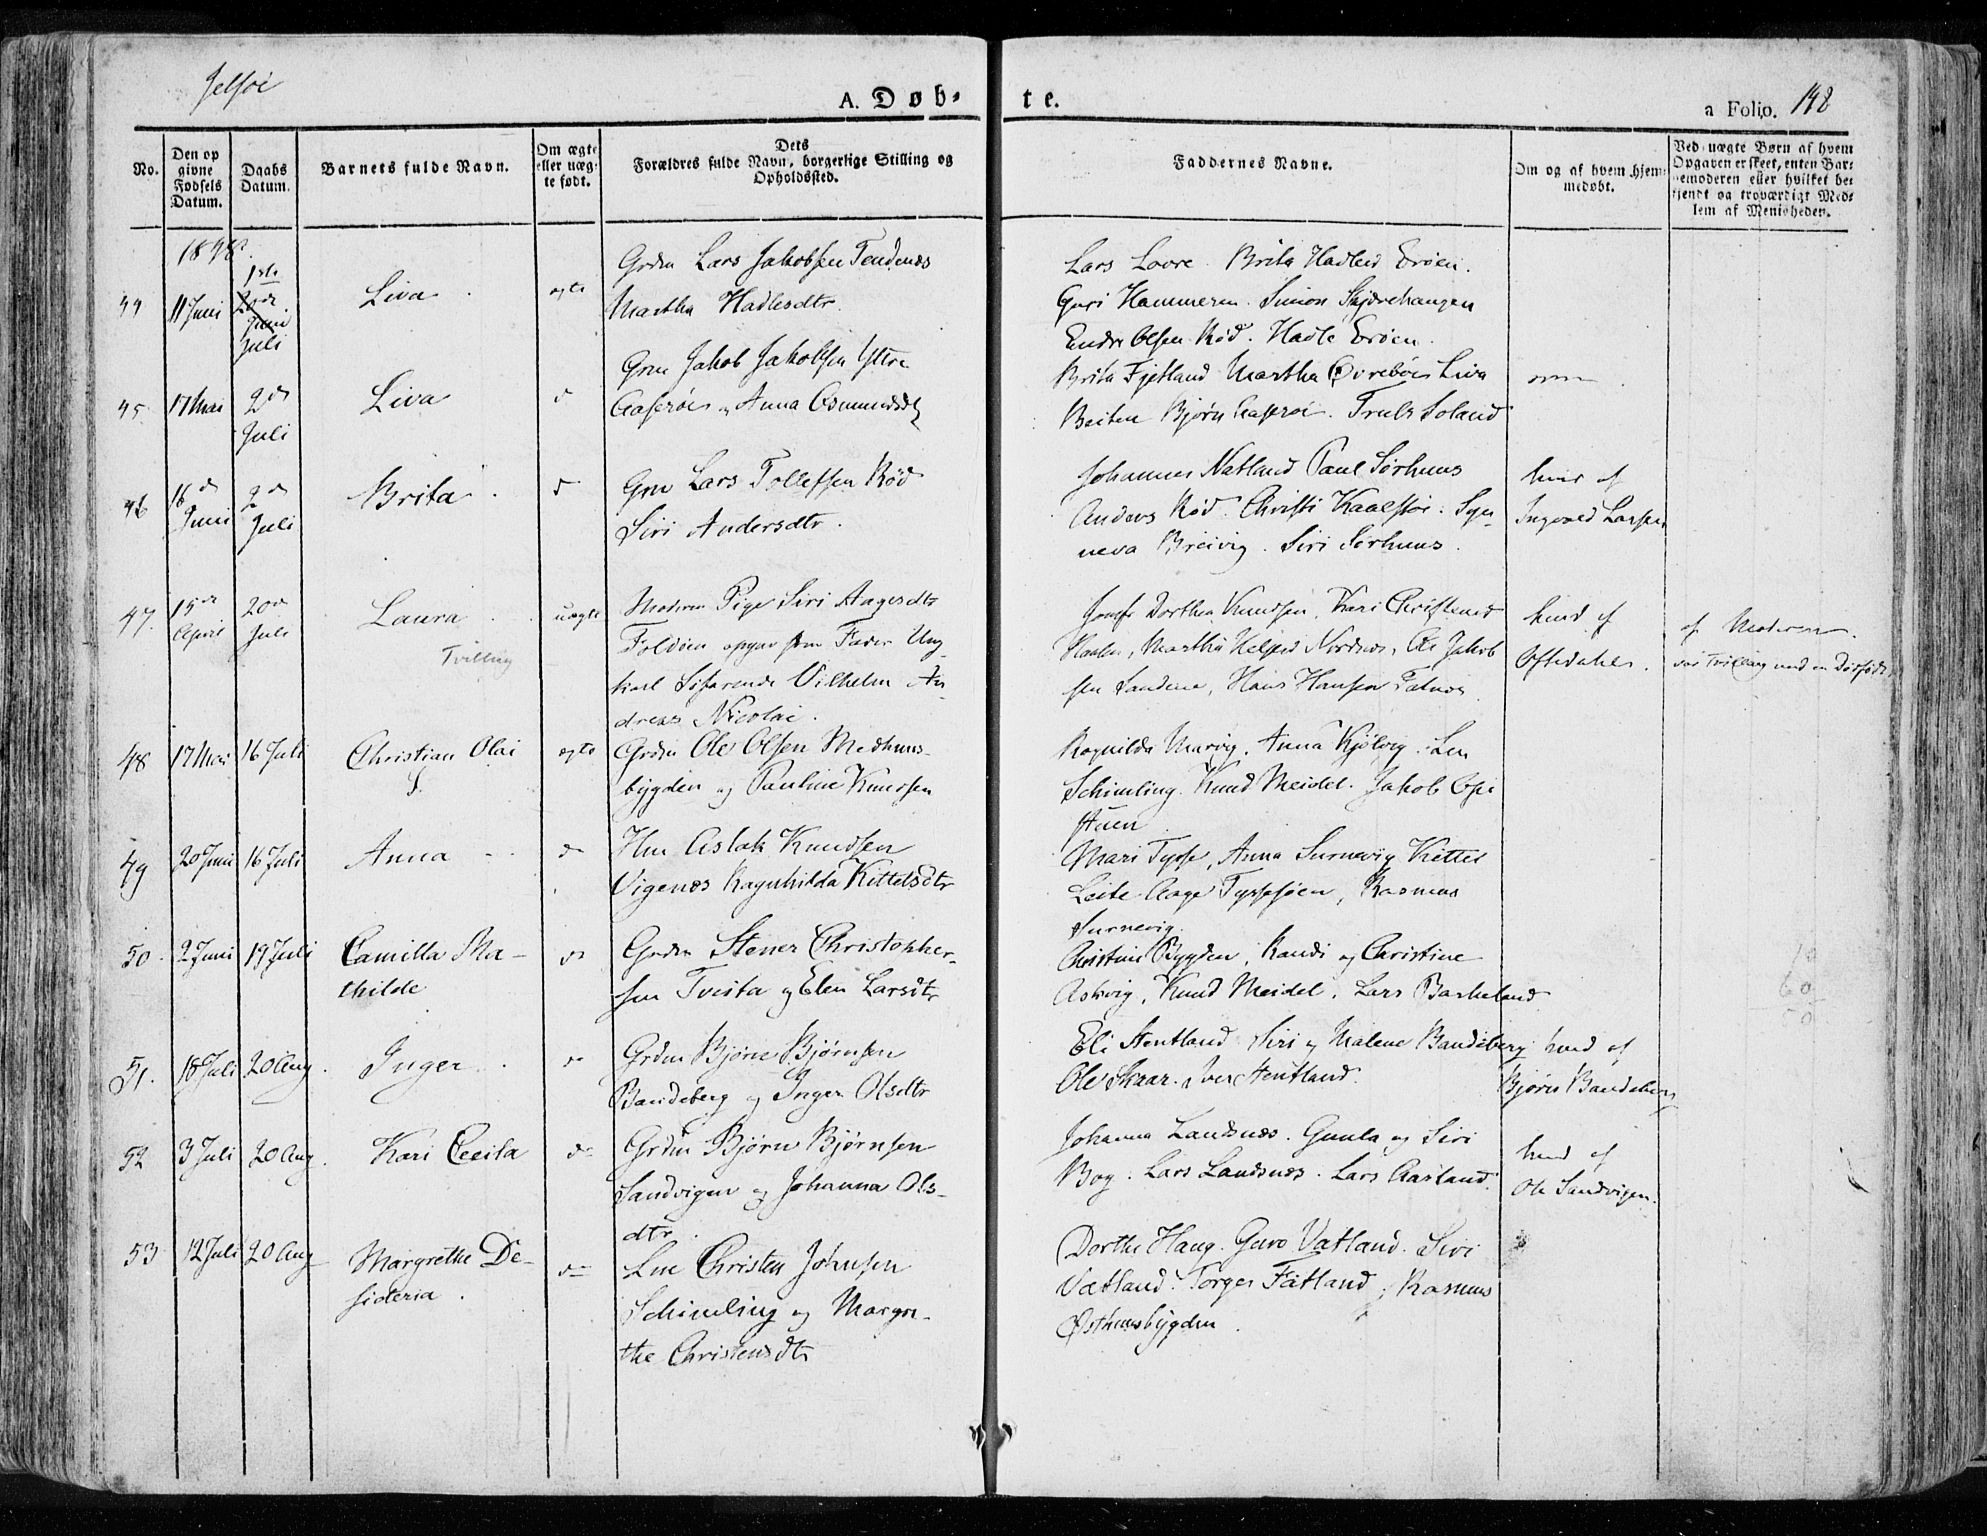 Jelsøe
A. Døb-
te.
a Folio. 148
No.
Den op
givne
Fødsels
Datum.
Daabs
Datum.
Barnets fulde Navn.
Om ægte
eller uæg-
te født.
Dets
Forældres fulde Navn, borgerlige Stilling og
Opholdssted.
Faddernes Navne.
Om og af hvem hjem-
medøbt.
Ved uægte Børn af hvem
Opgaven er skeet, enten Bar-
nemoderen eller hvilket be-
kjendt og troværdigt Med-
lem af Menigheden.
1848.
44 11 Juni 1ste Juli Liva ægte
Grdm Lars Jakobsen Tendenes
Martha Hadlesdtr
Lars Lovre Brita Hadleid Erøen.
Guri Hammeren. Simon Skjærehaugen
Endre Olsen Rød. Hadle Erøen.
45 17 Mai 2de Juli Liva d
Grm Jakob Jakobsen Ytre
Aaserøen og Anna Osmundsdtr
Brita Fjetland Martha Øvrebøe Liva
Beiten Bjørn Aaserøe. Truls Soland
46 18de Juni 2de Juli Brita d
Grm Lars Tollefsen Rød
Siri Andersdtr.
Johannes Natland Paul Sørhuus
Anders Rød. Christi Kaalstøe. Syn-
neva Breivig. Siri Sørhuus.
hind af
Ingvald Larsen
47. 15de April 20de Juli Laura Tvilling uægte
Moderen Pige Siri Aagesdtr
Foldøen opgav som Fader Ung-
karl Søfarende Vilhelm An-
dreas Nicolai.
Jomfr Dorthea Knudsen, Kari Christend
Martha Helgesd Nordnes, Jakob
sen Sandene, Hans Hansen
hind af
Oftedahl.
af Moderen.
var Tvilling med en Dødfødt
48 17 Mai 16 Juli Christian Olai ægte
S.
Grdm Ole Olsen Medhuus-
bygden og Pauline Knudsen
Ragnilda Marvig. Anna Kjølvig. Len
Schimling. Knud Meidel. Jakob Opi
stuen
49 20 Juni 16 Juli Anna d
Hm Aslak Knudsen
Vigenes Ragnhilda Kittelsdtr
Mari Tysse, Anna Surnevig Kittel
Leite Aage Tyssesøen, Rasmus
Surnevig.
50. 2 Juni 19 Juli Camilla Ma-
thilde
Grdm Stener Christopher-
sen Tveita og Elen Larsdtr
Christine Bygden, Randi og Christine
Askvig, Knud Meidel. Lars Barkeland
51. 18 Juli 20 Aug. Inger
Grdm Bjørn Bjørnsen
Bandeberg og Inger Olsdtr
Eli Hentland Siri og Malene Bandeberg
Ole Skaar. Iver Hentland.
hind af
Bjørn Bandeberg
52 3 Juli 20 Aug. Kari Cecila do
Grdm Bjørn Bjørnsen
Sandvigen og Johanna Ols-
dtr.
Johanna Landsnæs. Gunla og Siri
Bog. Lars Landsnæs. Lars Aasland.
hind af
Ole Sandvigen.
53 12 Juli 20 Aug Margrethe De-
sideria.
Lm Christen Johnsen
Schimling og Margre-
the Christensdtr
Dorthe Haug. Guro Vatland. Siri
Vatland. Torger Fatland, Rasmus
Østhuusbygden.